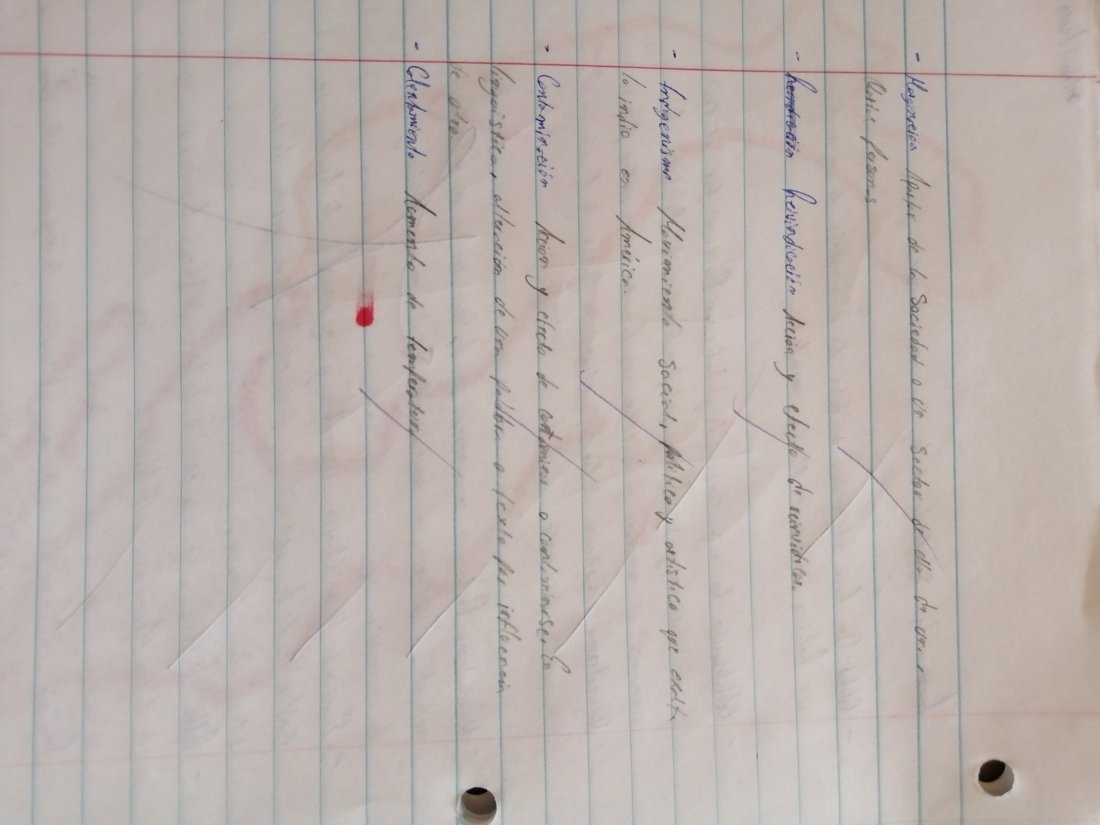 - Marginación Apartar de la Sociedad a un Sector de ella de una o
varias personas
- Reivindicación Acción y efecto de reivindicar.
- Indigenismo Movimiento Social, político y artístico que exalta
lo indio en América.
- Contaminación Acción y efecto de contaminar o contaminarse. En
lingüística, alteración de una palabra o texto por influencia
de otro
- Calentamiento Aumento de temperatura